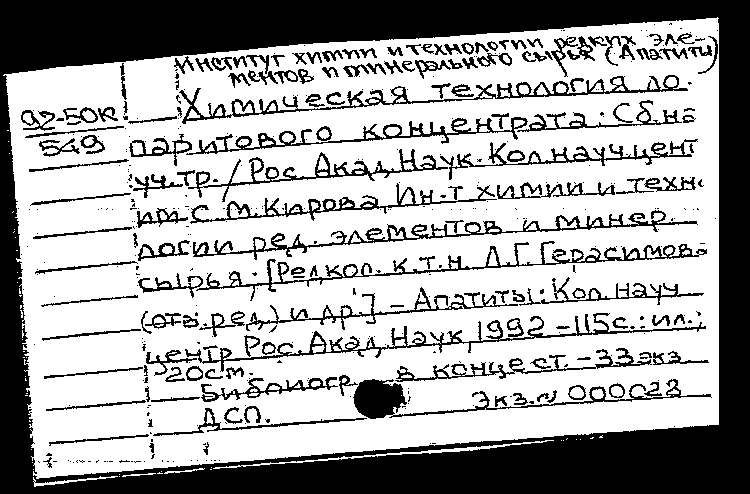 Институт химии и технологии редких эле-
ментов и минерального сырья (Апатиты)
92-50К
549
Химическая технология ло-
паритового концентрата: Сб. на
уч. тр. / Рос. Акад. Наук. Кол. науч. цент
им С. М. Кирова, Ин-т химии и техн.
логии ред. элементов и минер.
сырья; [Редкол. к.т.н. Л.Г. Герасимова
(отв. ред.) и др.] - Апатиты: Кол. науч
центр Рос. Акад. Наук, 1992 - 115с.: ил.;
20см.
Библиогр. в конце ст. - 33 экз.
ДСП. Экз. № 000023